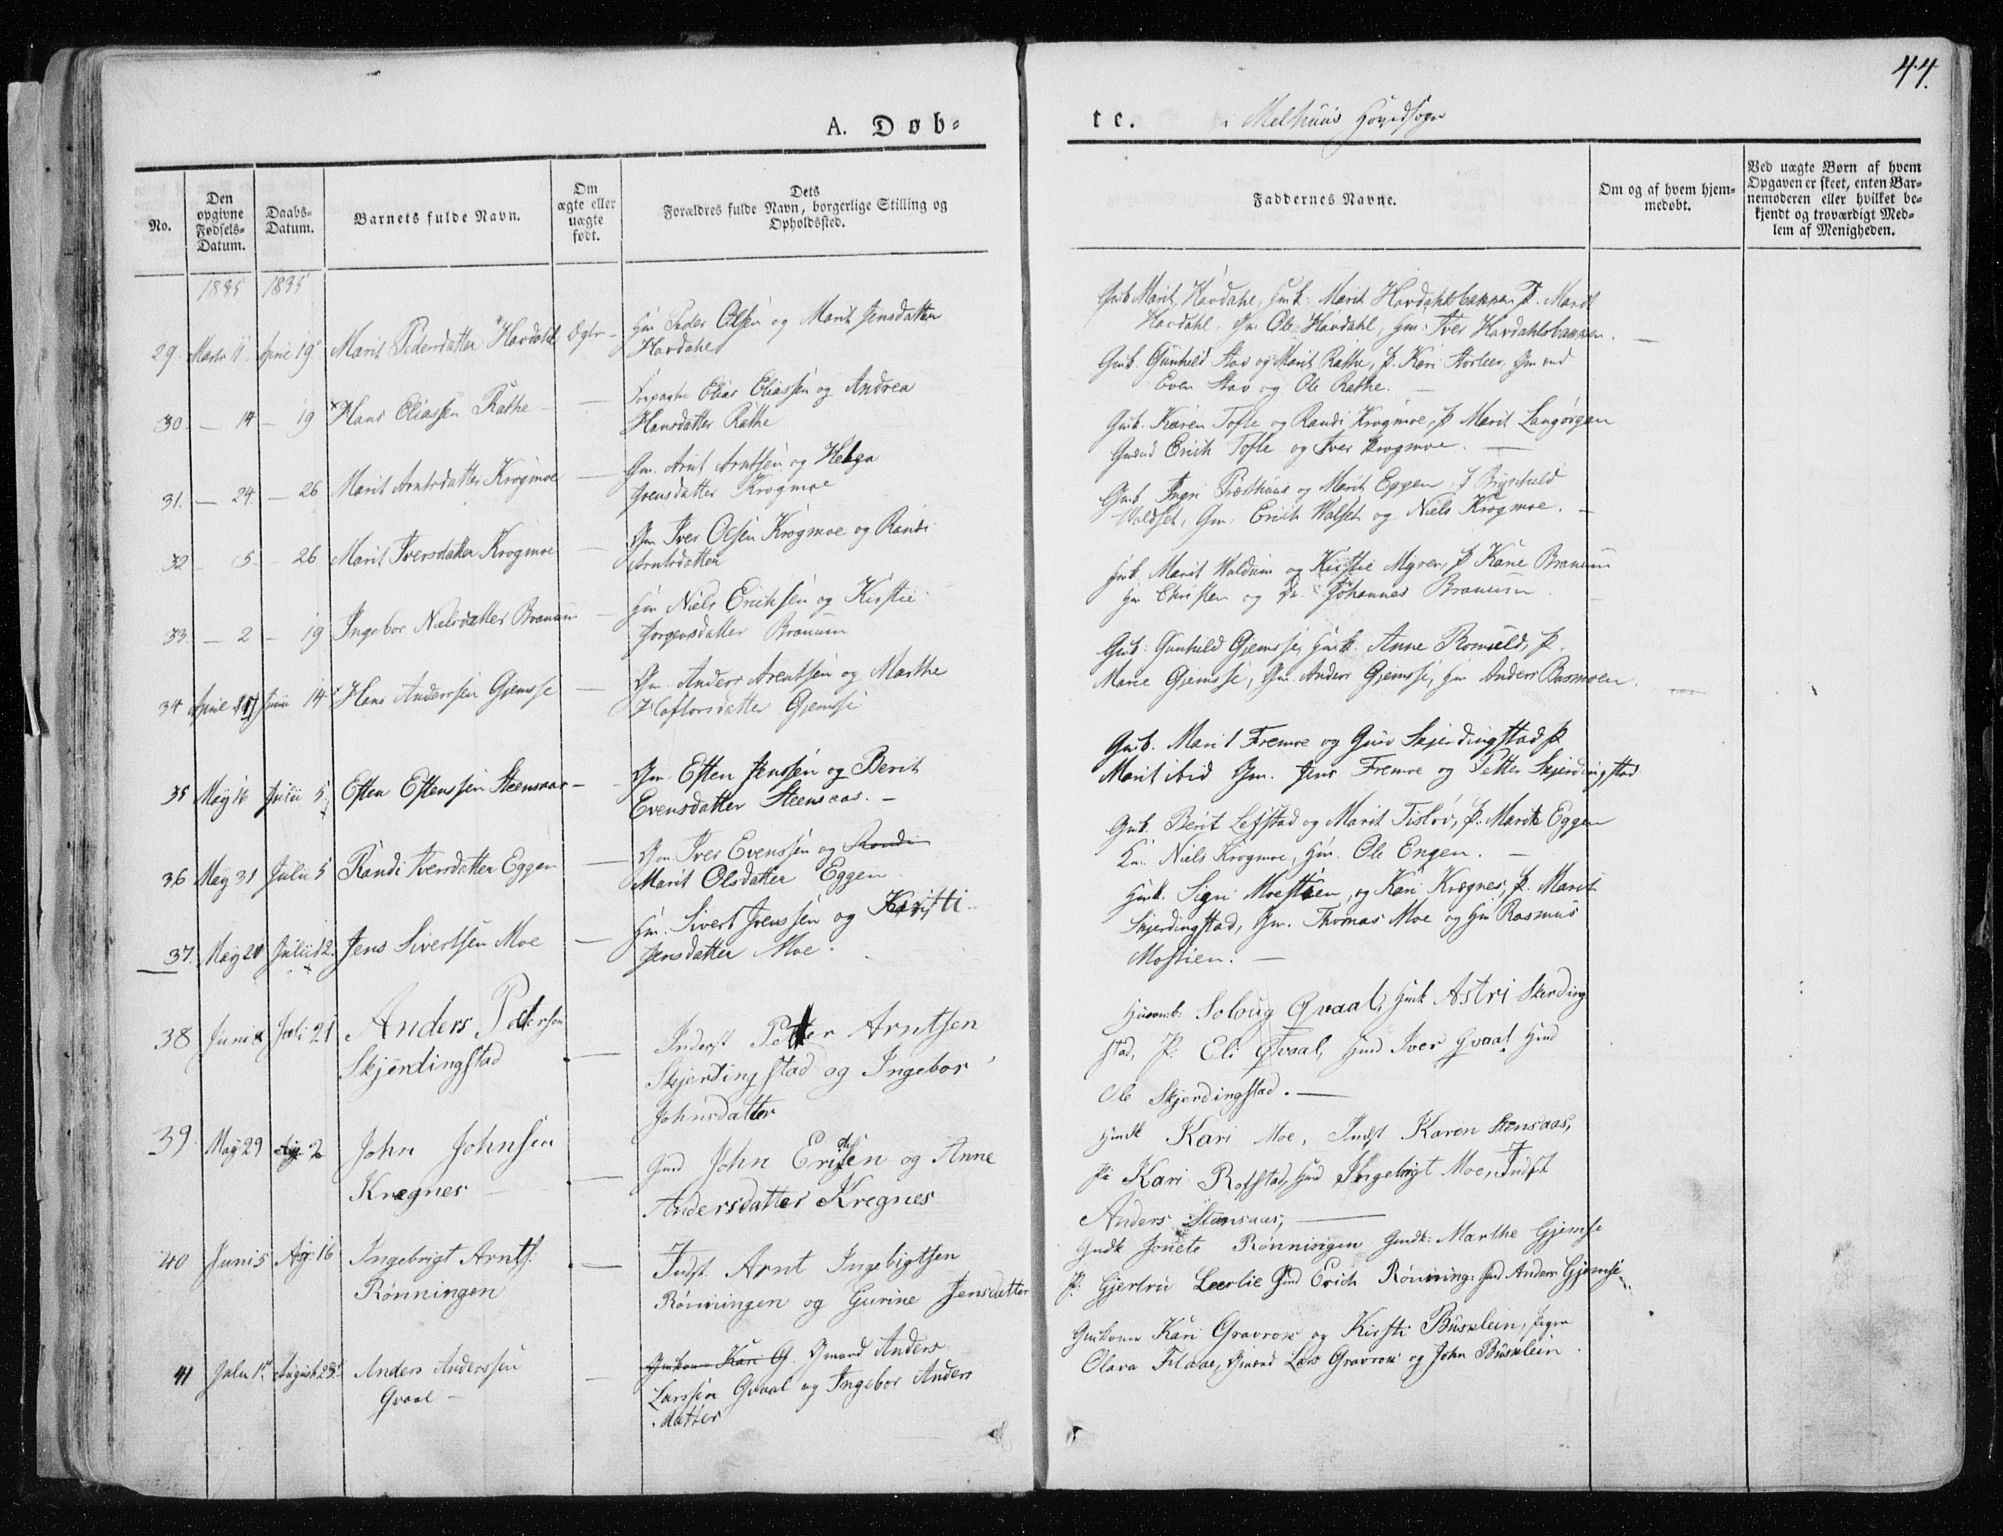 44.
A. Døb-
te.
i Melhuus Hovedsogn
No.
Den
opgivne
Fødsels-
Datum.
Daabs-
Datum.
Barnets fulde Navn.
Om
ægte eller
uægte
født.
Dets
Forældres fulde Navn, borgerlige Stilling og
Opholdssted.
Faddernes Navne.
Om og af hvem hjem-
medøbt.
Ved uægte Børn af hvem
Opgaven er skeet, enten Bar-
nemoderen eller hvilket be-
kjendt og troværdigt Med-
lem af Menigheden.
1835 1835
29. Marts 11 April 19 Marit Pedersdatter Havdahl Ægte
Hm Peder Olsen og Marit Jensdatter
Havdahl
Gmk Marit Havdahl, Hmk. Marit Havdahlsbakken P. Marit
Havdahl, Gm Ole Havdahl, Hm. Iver Havdahlsbakken.
30 — 14 — 19 Hans Eliassen Rathe —
Elias Eliassen og Andrea
Hansdatter Rathe
Gmk. Gunhild Stav og Marit Rathe, P. Kari Storleer, Gmænd
Even Stav og Ole Rathe. —
31. — 24. — 26 Marit Arntsdatter Krogmoe —
Gm. Arnt Arntsen og Helga
Jrensdatter Krogmoe
Gmk. Karen Tofte og Randi Krogmoe, P Marit Langørgen
Gmænd Erich Tofte og Iver Krogmoe. —
32 — 5. — 26 Marit Iversdatter Krogmoe —
Gm Iver Olsen Krogmoe og Randi
Arntsdatter
Gmk Ingri Præsthuus og Marit Eggen, P Brynhild
Waldset, Gm. Erich Walset og Niels Krogmoe. —
33 — 2 — 19 Ingebor Nielsdatter Braruum —
Hm Niels Erichsen og Kirstie
Jørgensdatter Braruum
Hmk. Marit Waldum og Kirstie Myren, P Kane Braruum
Hm Christen og Johannes Braruum.
34 April 17 Junii 14 Hans Anderssen Gjemse —
Gm. Anders Arentsen og Marthe
Hafторsdatter Gjemse
Gmk: Gunhild Gjemse, Hmk. Anne Romuld, P.
Marie Gjemse, Gm Anders Gjemse, Hm Anders Rasmoen.
35 May 16 Julii 5 Esten Estenssen Steensaas —
Gm. Esten Jenssen og Berit
Evensdatter Steensaas. —
Gmk. Marit Fremoe og Guro Skjerdingstad P
Marit ibid Gm. Jens Fremoe og Petter Skjerdingstad
36 May 31 Julii 5 Randi Iversdatter Eggen —
Gm Iver Evenssen og Randi
Marit Olsdatter Eggen
Gmk. Berit Lefstad og Marit Tisløv, P. Marit Eggen
Niels Krogmoe, Hm. Ole Engen. —
37. May 21 Julii 12. Jens Sivertsen Moe —
Hm. Sivert Jenssen og Kirsti
Jensdatter Moe.
Hmk. Signi Moestien, og Kari Krægnes, P. Marit
Skjerdingstad, Gm. Thomas Moe og Hm Rasmus
Mostien. —
38 Juni Juli 21 Anders Petersen
Skjerdingstad —
Inderst Petter Arntsen
Skjerdingstad og Ingebor
Johnsdatter
Huusmk: Solvug Qvaal, Hmk Astri Skerding
stad, P. Eli Qvaal, Hmd Iver Qvaal Hmd
Ole Skjerdingstad. —
39. May 29 Aug 2 John Johnsen
Krægnes —
Gmd John Erichsen og Anne
Andersdatter Kregnes
Hmdk Kari Moe, Indst Karen Stensaas,
P: Kari Rofstad, Hmd Ingebrigt Moe, Indst
Anders Stensaas, —
40 Juni 5 Ag: 16 Ingebrigt Arnts:
Rønningen —
Indst. Arnt Ingebigtsen
Rønningen og Gurine Jensdatter
Gmdk Jonete Rønningen Gmdk: Marthe Gjemse
P. Gjertru Leerlie Gmd Erich Rønning: Gmd Anders Gjemse
41 Julii 1 August 23 Anders Anderssen
Qvaal —
Gmkone Kari G. Gmand Anders
Larssen Qvaal og Ingebor Anders
datter
Gmkoner Kari Gravrok og Kirsti Busklein, Pigen
Olava Flaae, Gmænd Lars Gravrok og John Busklein.